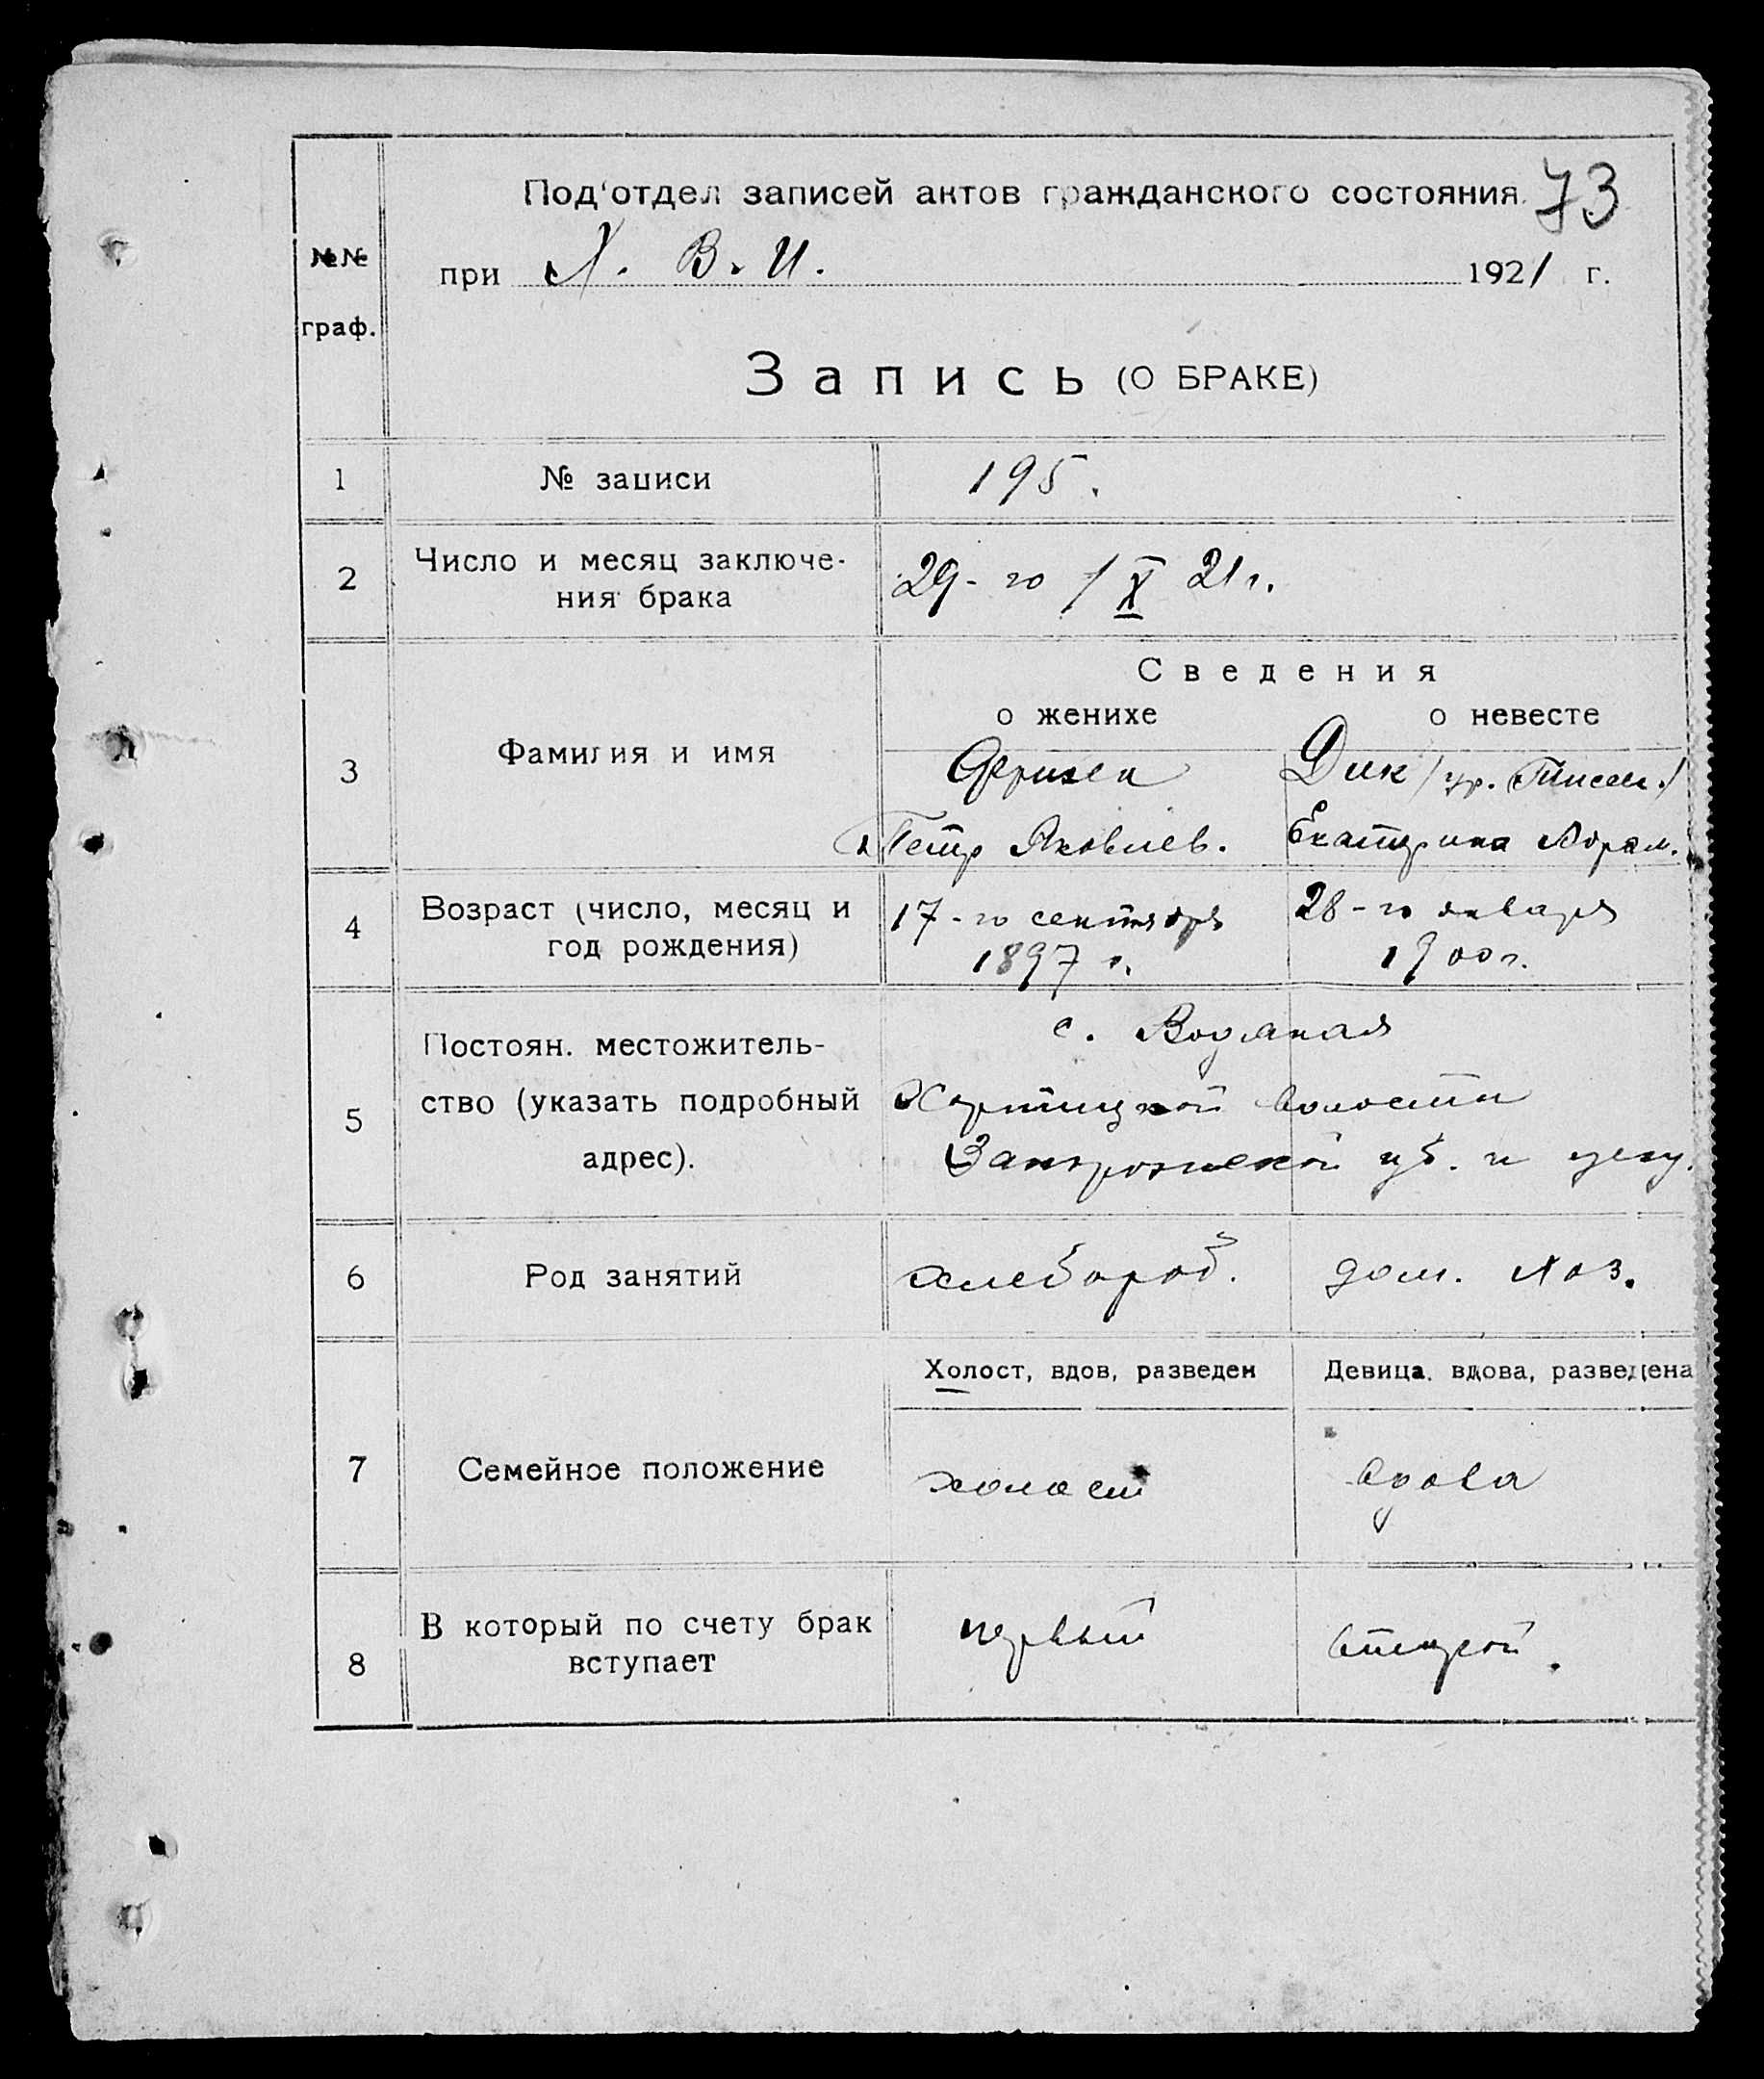 73
Под'отдел записей актов гражданского состояния
№№ граф.
при Х. В. И. 1921 г.
Запись (О БРАКЕ)
1 № записи 195.
2 Число и месяц заключе-
ния брака 29-го / X 21 г.
Сведения
о женихе о невесте
3 Фамилия и имя Фризен Дик /ур. Тиссен./
Петр Яковлев. Екатерина Абрам.
4 Возраст (число, месяц и 17-го сентября 28-го января
год рождения) 1897 г. 1900 г.
с. Водяная
5 Постоян. местожитель-
ство (указать подробный Хортицкой волости
адрес). Запорожской губ. и уезд.
6 Род занятий хлебороб. дом. хоз.
Холост, вдов, разведен Девица, вдова, разведена
7 Семейное положение холост вдова
8 В который по счету брак первый второй.
вступает